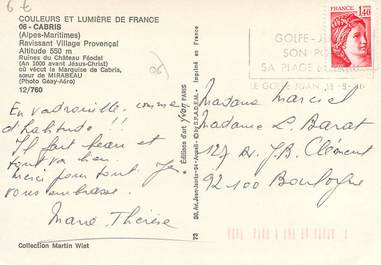 6 €
COULEURS ET LUMIÈRE DE FRANCE
06 - CABRIS
(Alpes-Maritimes)
Ravissant Village Provençal
Altitude 550 m
Ruines du Château Féodal
(An 1000 avant Jésus-Christ)
où vécut la Marquise de Cabris,
sœur de MIRABEAU
(Photo Geay-Aéro)
12/760
En vadrouille comme
d'habitude !!
Il fait beau et
tout va bien
merci pour tout Je
vous embrasse.
Marie Thérèse
Collection Martin Wist
Éditions d'art yvon PARIS
imprimé en France
GOLFE-J
SON PO
SA PLAGE
LE GOLFE JUAN
1,40
FRANCE
Madame Marcial
Madame L. Barat
127 Av. J.B. Clément
92100 Boulogne